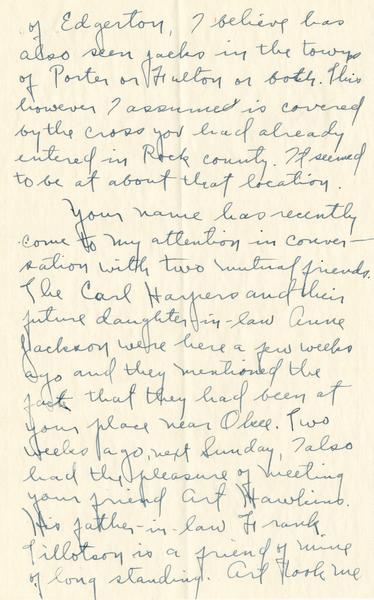 of Edgerton, I believe has
also seen jacks in the towns
of Porter or Fulton or both. This
however I assumed is covered
by the cross you had already
entered in Rock county. It seemed
to be at about that location.
Your name has recently
come to my attention in conver-
sation with two mutual friends.
The Carl Harpers and their
future daughter-in-law Anne
Jackson were here a few weeks
ago and they mentioned the
fact that they had been at
your place near Okee. Two
weeks ago, next Sunday, I also
had the pleasure of meeting
your friend Art Hawkins.
His father-in-law Frank
Tillotson is a friend of mine
of long standing. Art took me